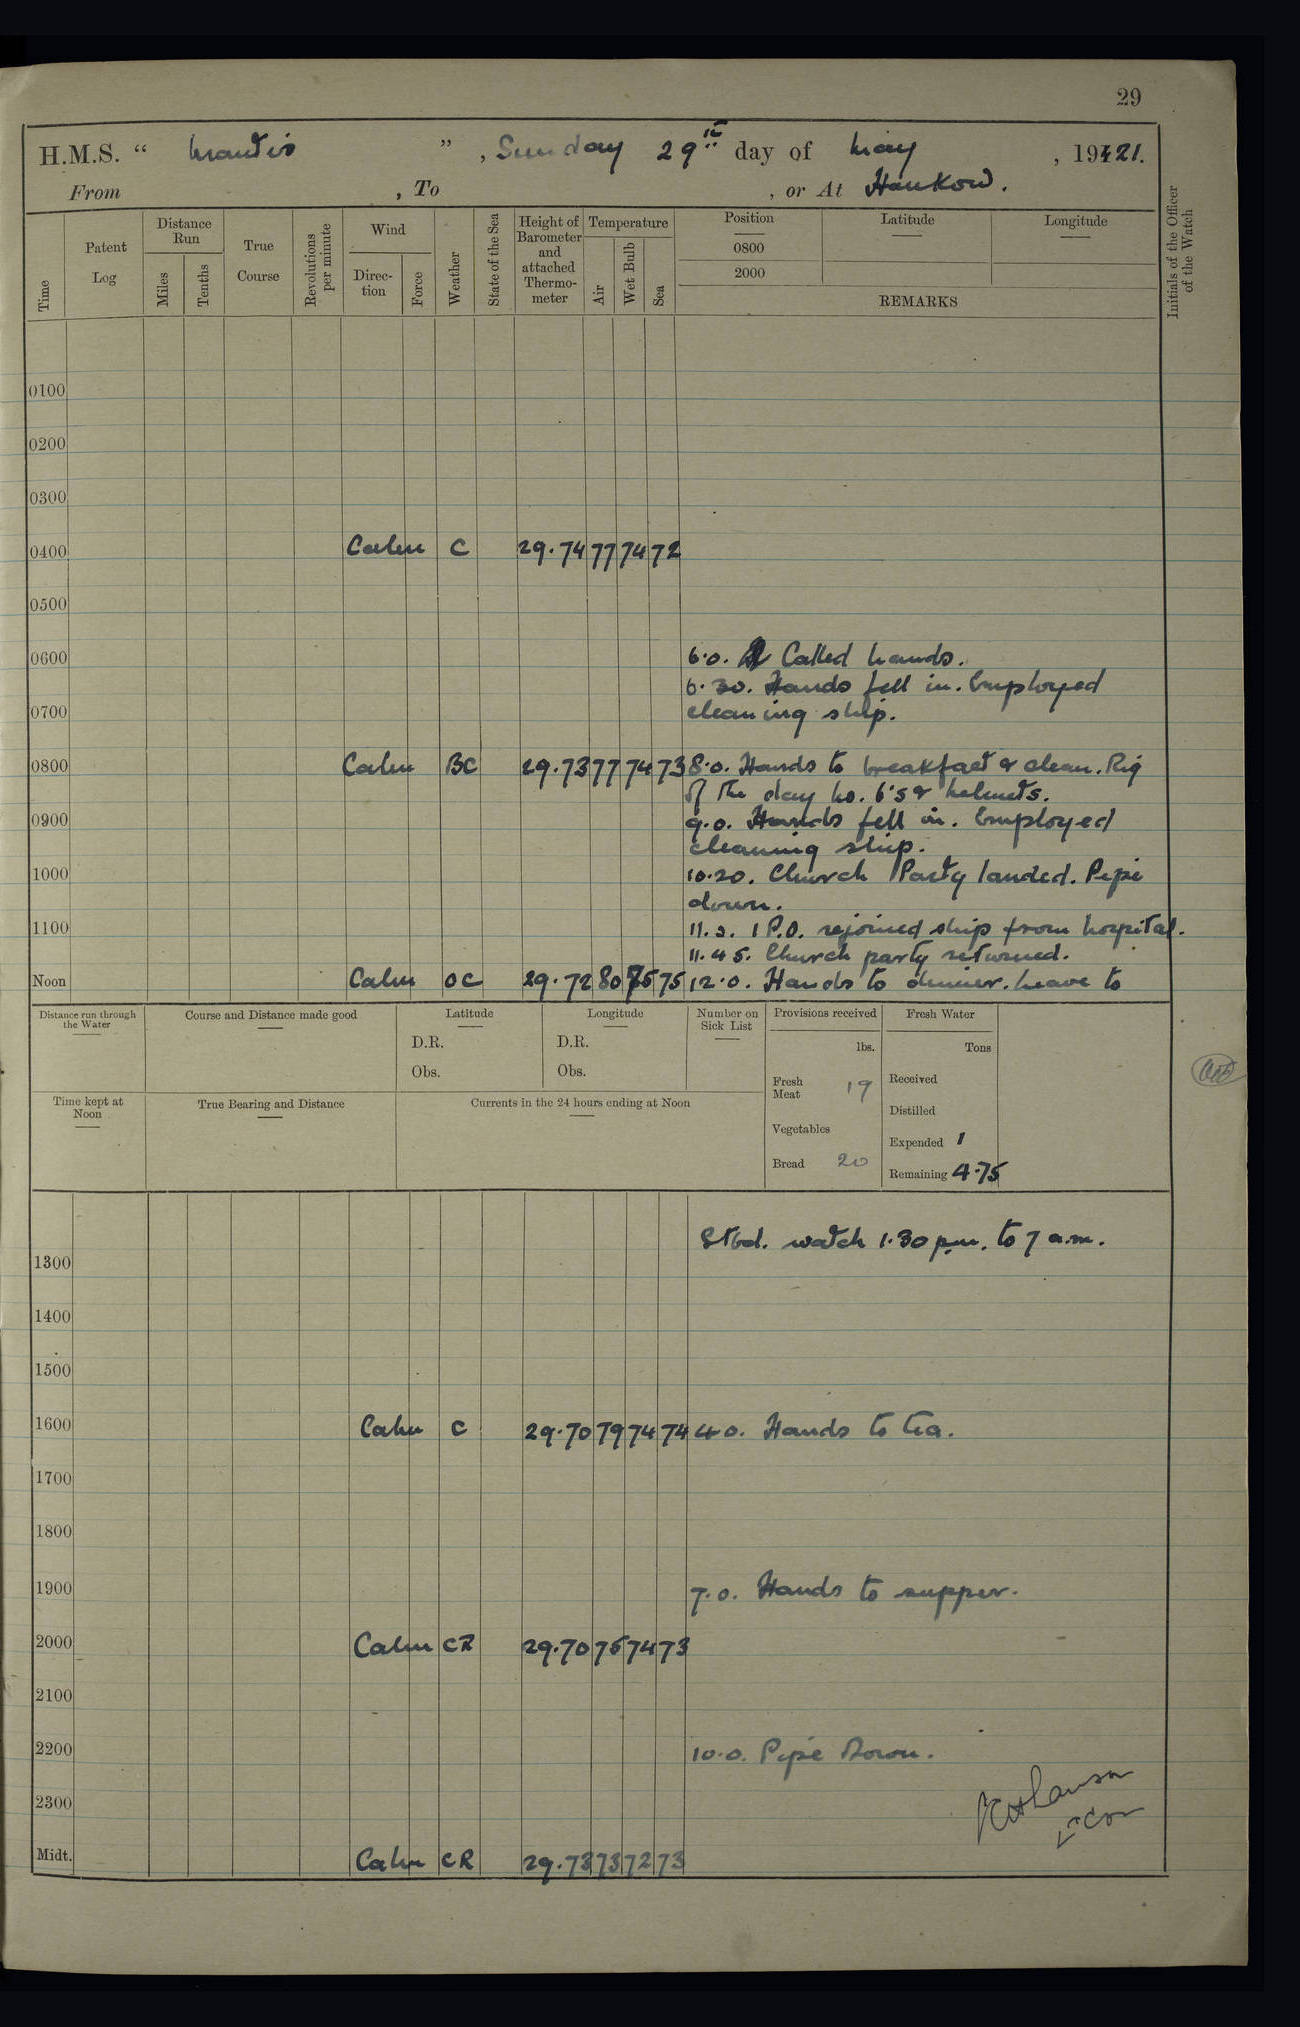 29
H.M.S. “ Mantis ” , Sunday 29th day of May , 1921.
From , To , or At Hankow.
Time
Patent Log
Distance Run
Miles
Tenths
True Course
Revolutions per minute
Wind
Direction
Force
Weather
State of the Sea
Height of Barometer and attached Thermometer
Temperature
Air
Wet Bulb
Sea
Position
0800
2000
Latitude
Longitude
REMARKS
Initials of the Officer of the Watch
0100
0200
0300
0400 Calm C 29.74 77 74 72
0500
0600 6.0. Called hands.
6.30. Hands fell in. Employed
0700 cleaning ship.
0800 Calm BC 29.73 77 74 73 8.0. Hands to breakfast & clean. Rig
of the day No. 6's & helmets.
0900 9.0. Hands fell in. Employed
cleaning ship.
1000 10.20. Church Party landed. Pipe
down.
1100 11.0. 1 P.O. rejoined ship from hospital.
11.45. Church party returned.
Noon Calm OC 29.72 80 75 75 12.0. Hands to dinner. Leave to
Distance run through the Water
Course and Distance made good
Latitude
D.R.
Obs.
Longitude
D.R.
Obs.
Number on Sick List
Provisions received
lbs.
Fresh Meat 19
Vegetables
Bread 20
Fresh Water
Tons
Received
Distilled
Expended 1
Remaining 4.75
Time kept at Noon
True Bearing and Distance
Currents in the 24 hours ending at Noon
Stbd. watch 1.30 p.m. to 7 a.m.
1300
1400
1500
1600 Calm C 29.70 79 74 74 4.0. Hands to tea.
1700
1800
1900 7.0. Hands to supper.
2000 Calm CR 29.70 75 74 73
2100
2200 10.0. Pipe Down.
2300
Lt Cdr
Midt. Calm CR 29.73 73 72 73